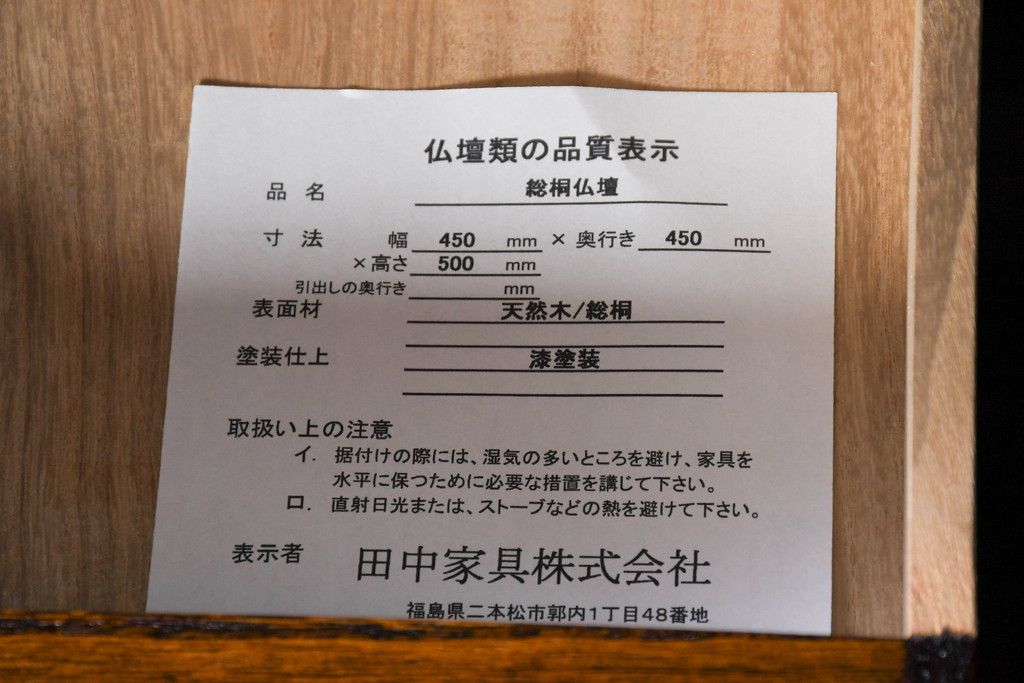 仏壇類の品質表示
品 名 総桐仏壇
寸 法 幅 450 mm × 奥行き 450 mm
×高さ 500 mm
引出しの奥行き mm
表面材 天然木/総桐
塗装仕上 漆塗装
取扱い上の注意
イ. 据付けの際には、湿気の多いところを避け、家具を
水平に保つために必要な措置を講じて下さい。
ロ. 直射日光または、ストーブなどの熱を避けて下さい。
表示者 田中家具株式会社
福島県二本松市郭内1丁目48番地